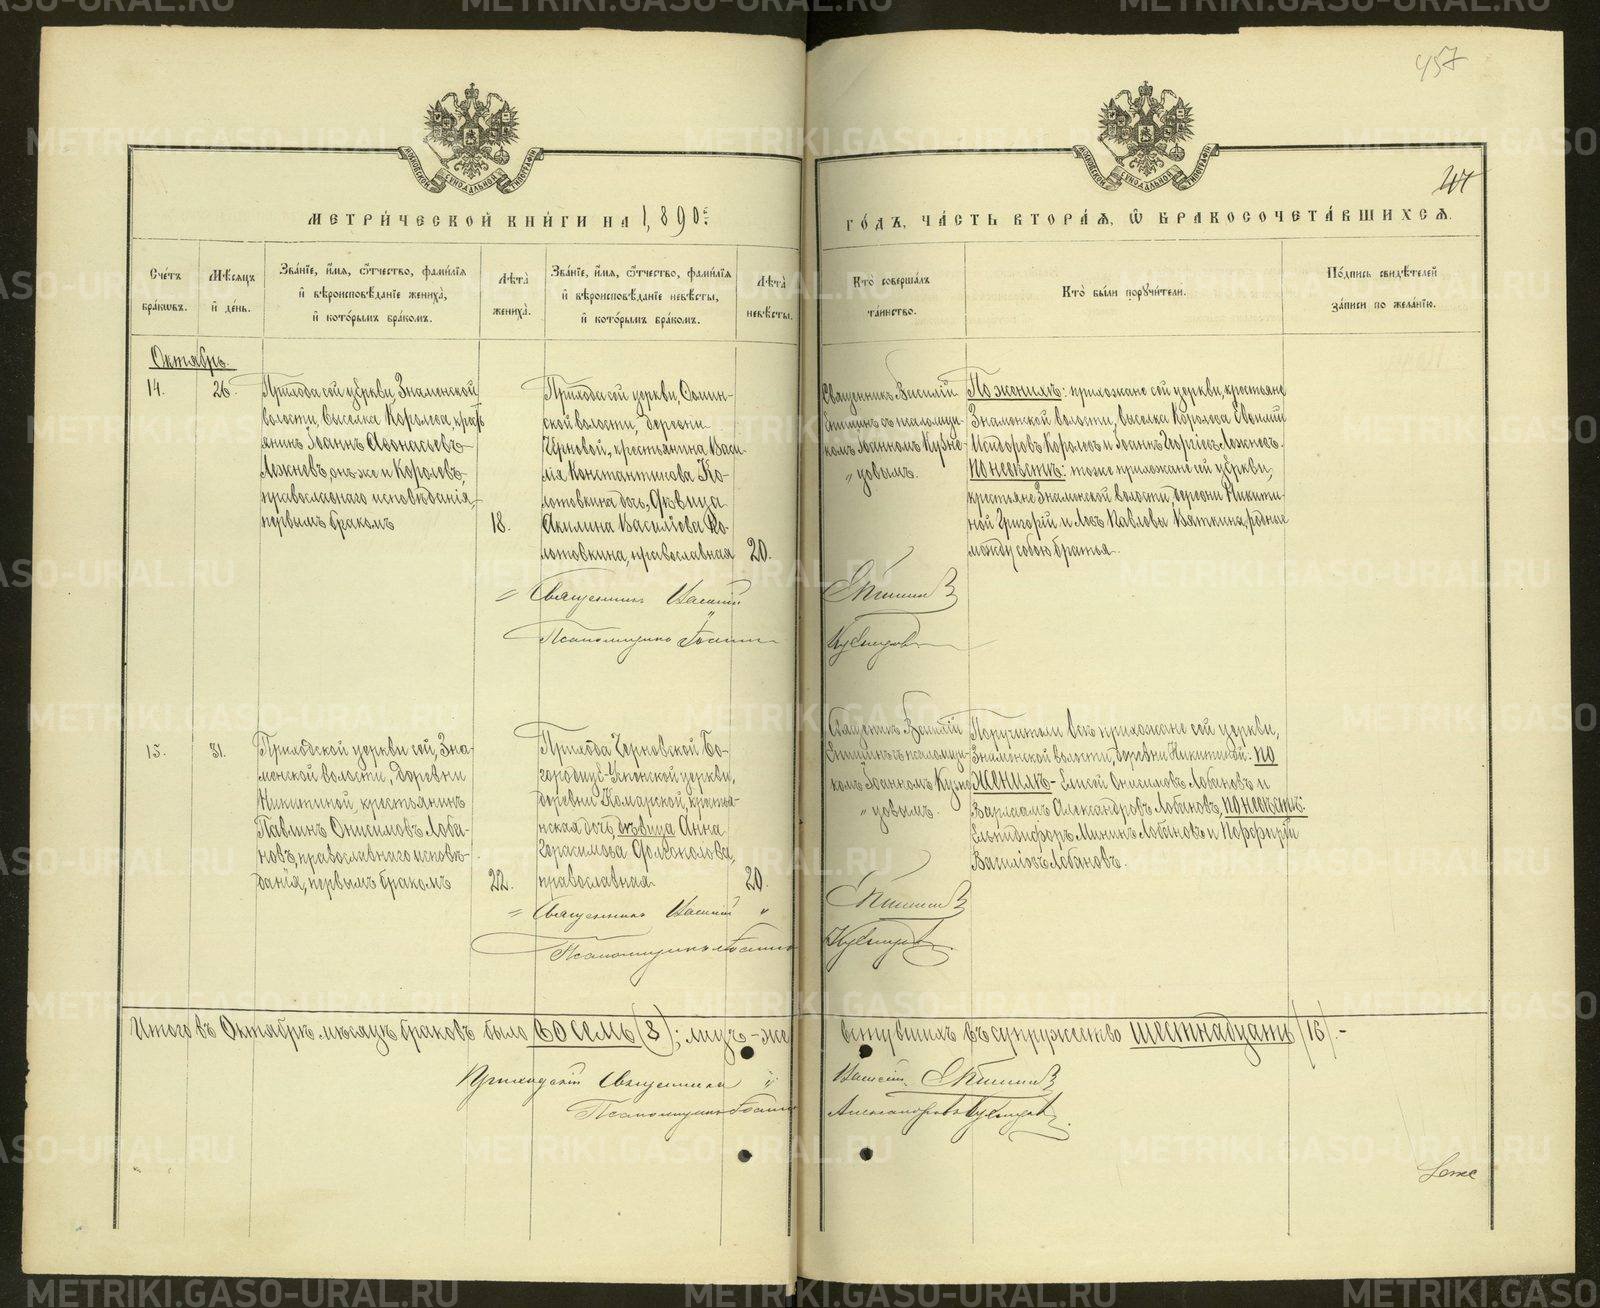 457
МОСКОВСКОЙ СѴНОДАЛЬНОЙ ТИПОГРАФІИ
МОСКОВСКОЙ СѴНОДАЛЬНОЙ ТИПОГРАФІИ
МЕТРИ́ЧЕСКОЙ КНИ́ГИ НА 1890
ГО́ДЪ, ЧА́СТЬ ВТОРА́Я, Ѿ БРАКОСОЧЕТА́ВШИХСЯ.
Сче́тъ бра́кѡвъ.
Мѣ́сяцъ и҆ де́нь.
Зва́нїе, и҆́мя, ѻ҆́тчество, фами́лїя
и҆ вѣроисповѣ́данїе жениха̀,
и҆ кото́рымъ бра́комъ.
Лѣта̀ жениха̀.
Зва́нїе, и҆́мя, ѻ҆́тчество, фами́лїя
и҆ вѣроисповѣ́данїе невѣ́сты,
и҆ кото́рымъ бра́комъ.
Лѣта̀ невѣ́сты.
Кто̀ соверша́лъ та́инство.
Кто̀ бы́ли порꙋчи́тели.
По́дпись свидѣ́телей
за́писи по жела́нїю.
Октябрь.
14.
26.
Прихода сей церкви, Знаменской
волости, выселка Королева, кресть
янинъ Іоаннъ Аѳонасьевъ
Лежневъ, онъ же и Королевъ,
православнаго исповѣданія,
первымъ бракомъ
18.
Прихода сей церкви,
ской волости, деревни
Черновой, крестьянина Васи
лія Константинова Ко-
лотовкина дочь, дѣвица
Акилина Василіева Ко-
лотовкина, православная
20.
Священникъ Василій
съ псаломщи-
комъ Іоанномъ Кузне-
цовымъ.
По женихѣ: прихожане сей церкви, крестьяне
Знаменской волости, выселка Королева Евѳимій
Исидоровъ Королевъ и Іоаннъ Георгіевъ Лежневъ.
По невѣстѣ: тоже прихожане сей церкви,
крестьяне Знаменской волости, деревни Никити-
ной Григорій и Левъ Павловы Вяткины, родные
между собою братья.
Священникъ Василій
Псаломщикъ Іоаннъ
Кузнецовъ
15.
31.
Приходской церкви сей, Зна-
менской волости, деревни
Никитиной, крестьянинъ
Павлинъ Онисимовъ Лоба-
новъ, православнаго исповѣ-
данія, первымъ бракомъ
22.
Прихода Черновской Бо-
городице- церкви,
деревни Комарской, крестья-
нская дочь, дѣвица Анна
Герасимова
православная
20.
Священникъ Василій
съ псаломщи-
комъ Іоанномъ Кузне
цовымъ.
Поручители всѣ прихожане сей церкви,
Знаменской волости, деревни Никитиной: по
женихѣ - Елисей Онисимовъ Лобановъ и
Варлаамъ Александровъ Лобановъ, по невѣстѣ:
Елпидифоръ Мининъ Лобановъ и Порфирій
Василіевъ Лобановъ.
Священникъ Василій
Псаломщикъ Іоаннъ
Кузнецовъ
Итого въ Октябрѣ мѣсяцѣ браковъ было восемь (8); лицъ-же
вступившихъ въ супружество шестнадцать (16).-
Приходскій Священникъ
Василій
Псаломщикъ Іоаннъ
Александровъ Кузнецовъ
METRIKI.GASO-URAL.RU